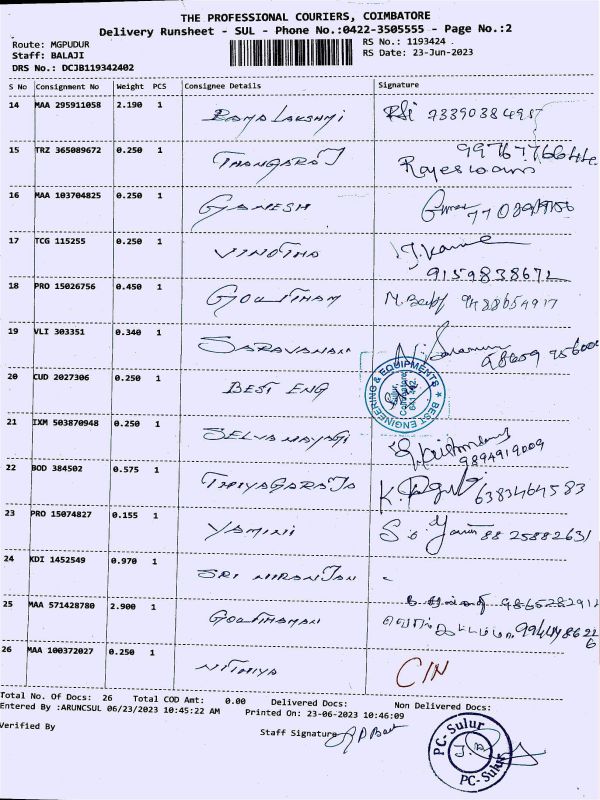 THE PROFESSIONAL COURIERS, COIMBATORE
Delivery Runsheet - SUL - Phone No.:0422-3505555 - Page No.:2
Route: MGPUDUR RS No.: 1193424 .
Staff: BALAJI RS Date: 23-Jun-2023
DRS No.: DCJB119342402
S No Consignment No Weight PCS Consignee Details Signature
14 MAA 295911058 2.190 1 RAMALAKSHMI
15 TRZ 365089672 0.250 1 THANGARAJ
16 MAA 103704825 0.250 1 GANESH
17 TCG 115255 0.250 1 VINOTHA
9159838672
18 PRO 15026756 0.450 1 GOWTHAM 9488654917
19 VLI 303351 0.340 1 SARAVANAN
20 CUD 2027306 0.250 1 BEST ENG BEST ENGINEERING & EQUIPMENTS ★
21 IXM 503870948 0.250 1 SELVANAYAGI
9894919009
22 BOD 384502 0.575 1 THIYAGARAJA 6383464583
23 PRO 15074827 0.155 1 YAMINI 88 25882631
24 KDI 1452549 0.970 1 SRI NIRANJAN
25 MAA 571428780 2.900 1 GOWTHAMAN 9865282912
26 MAA 100372027 0.250 1 NITHIYA C/N
Total No. Of Docs: 26 Total COD Amt: 0.00 Delivered Docs: Non Delivered Docs:
Entered By :ARUNCSUL 06/23/2023 10:45:22 AM Printed On: 23-06-2023 10:46:09
Verified By Staff Signature
PC-Sulur
PC-Sulur